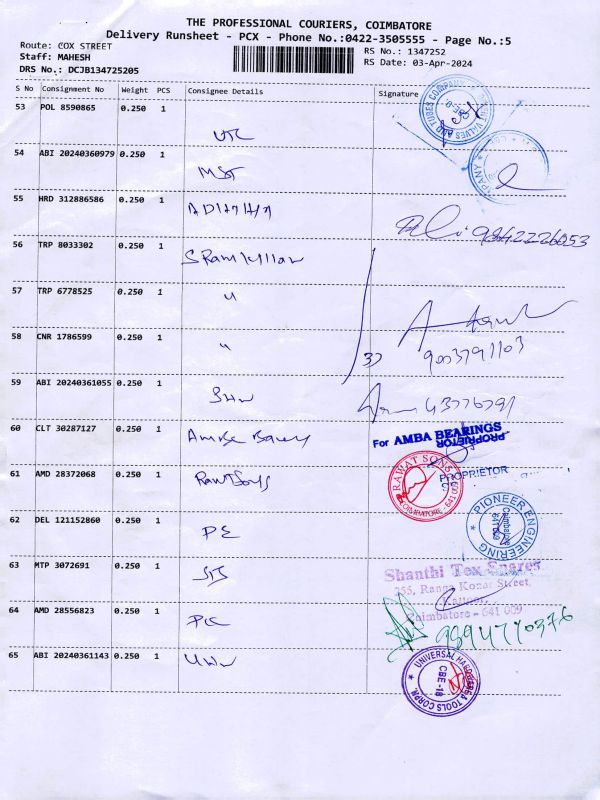 THE PROFESSIONAL COURIERS, COIMBATORE
Delivery Runsheet - PCX - Phone No.:0422-3505555 - Page No.:5
Route: COX STREET
RS No.: 1347252
Staff: MAHESH
RS Date: 03-Apr-2024
DRS No.: DCJB134725205
S No Consignment No Weight PCS Consignee Details Signature
53 POL 8590865 0.250 1
UTC
VALVES AND TUBES COMPANY
54 ABI 20240360979 0.250 1
MST
55 HRD 312886586 0.250 1
9842226053
56 TRP 8033302 0.250 1
57 TRP 6778525 0.250 1
"
58 CNR 1786599 0.250 1
"
9003791103
59 ABI 20240361055 0.250 1
60 CLT 30287127 0.250 1
For AMBA BEARINGS
PROPRIETOR
61 AMD 28372068 0.250 1
RAWAT SONS
COIMBATORE - 641 009
PROPRIETOR
62 DEL 121152860 0.250 1
PE
PIONEER ENGINEERING
Coimbatore
641 009
63 MTP 3072691 0.250 1
STS
Shanthi Tex Spares
255, Ranga Konar Street,
Kattoor,
Coimbatore - 641 009
64 AMD 28556823 0.250 1
9894770376
65 ABI 20240361143 0.250 1
UNIVERSAL HARDWARES & TOOLS CORPR.
CBE-18